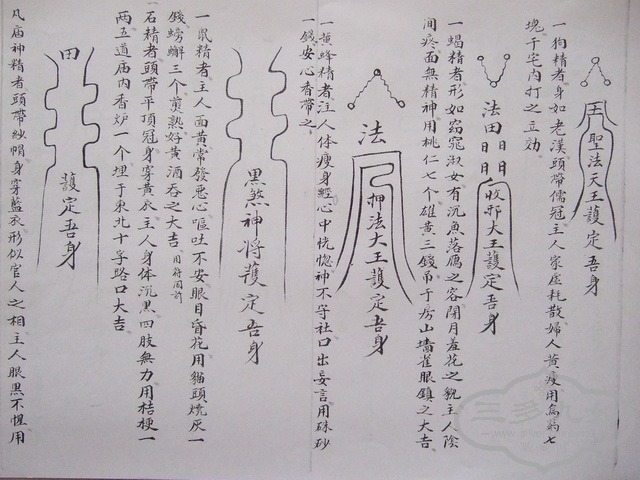 聖法天王護定吾身
一狗精者身如老漢頭帶儒冠主人家虛耗散婦人黃瘦用烏葯七
塊于宅內打之立効
法田日日日日收邪大王護定吾身
一蝎精者形如窈窕淑女有沉魚落鴈之容閉月羞花之貌主人陰
間疼面無精神用桃仁七个雄黃三錢吊于房山墻雀眼鎮之大吉
法押法大王護定吾身
一黃蜂精者注人体瘦身經心中恍惚神不守社口出妄言用硃砂
一錢安心香帶之
黑煞神将護定吾身
一鼠精者主人面黃常發惡心嘔吐不安眼目昏花用貓頭燒灰一
錢螃蠏三个煎熟好黃酒吞之大吉用符同前
石精者頭帶平頂冠身穿黃衣主人身体沉黑四肢無力用桔梗一
两五道庙内香炉一个埋于東北十字路口大吉
田護定吾身
凡庙神精者頭帶紗帽身穿藍衣形似官人之相主人眼黑不惺用